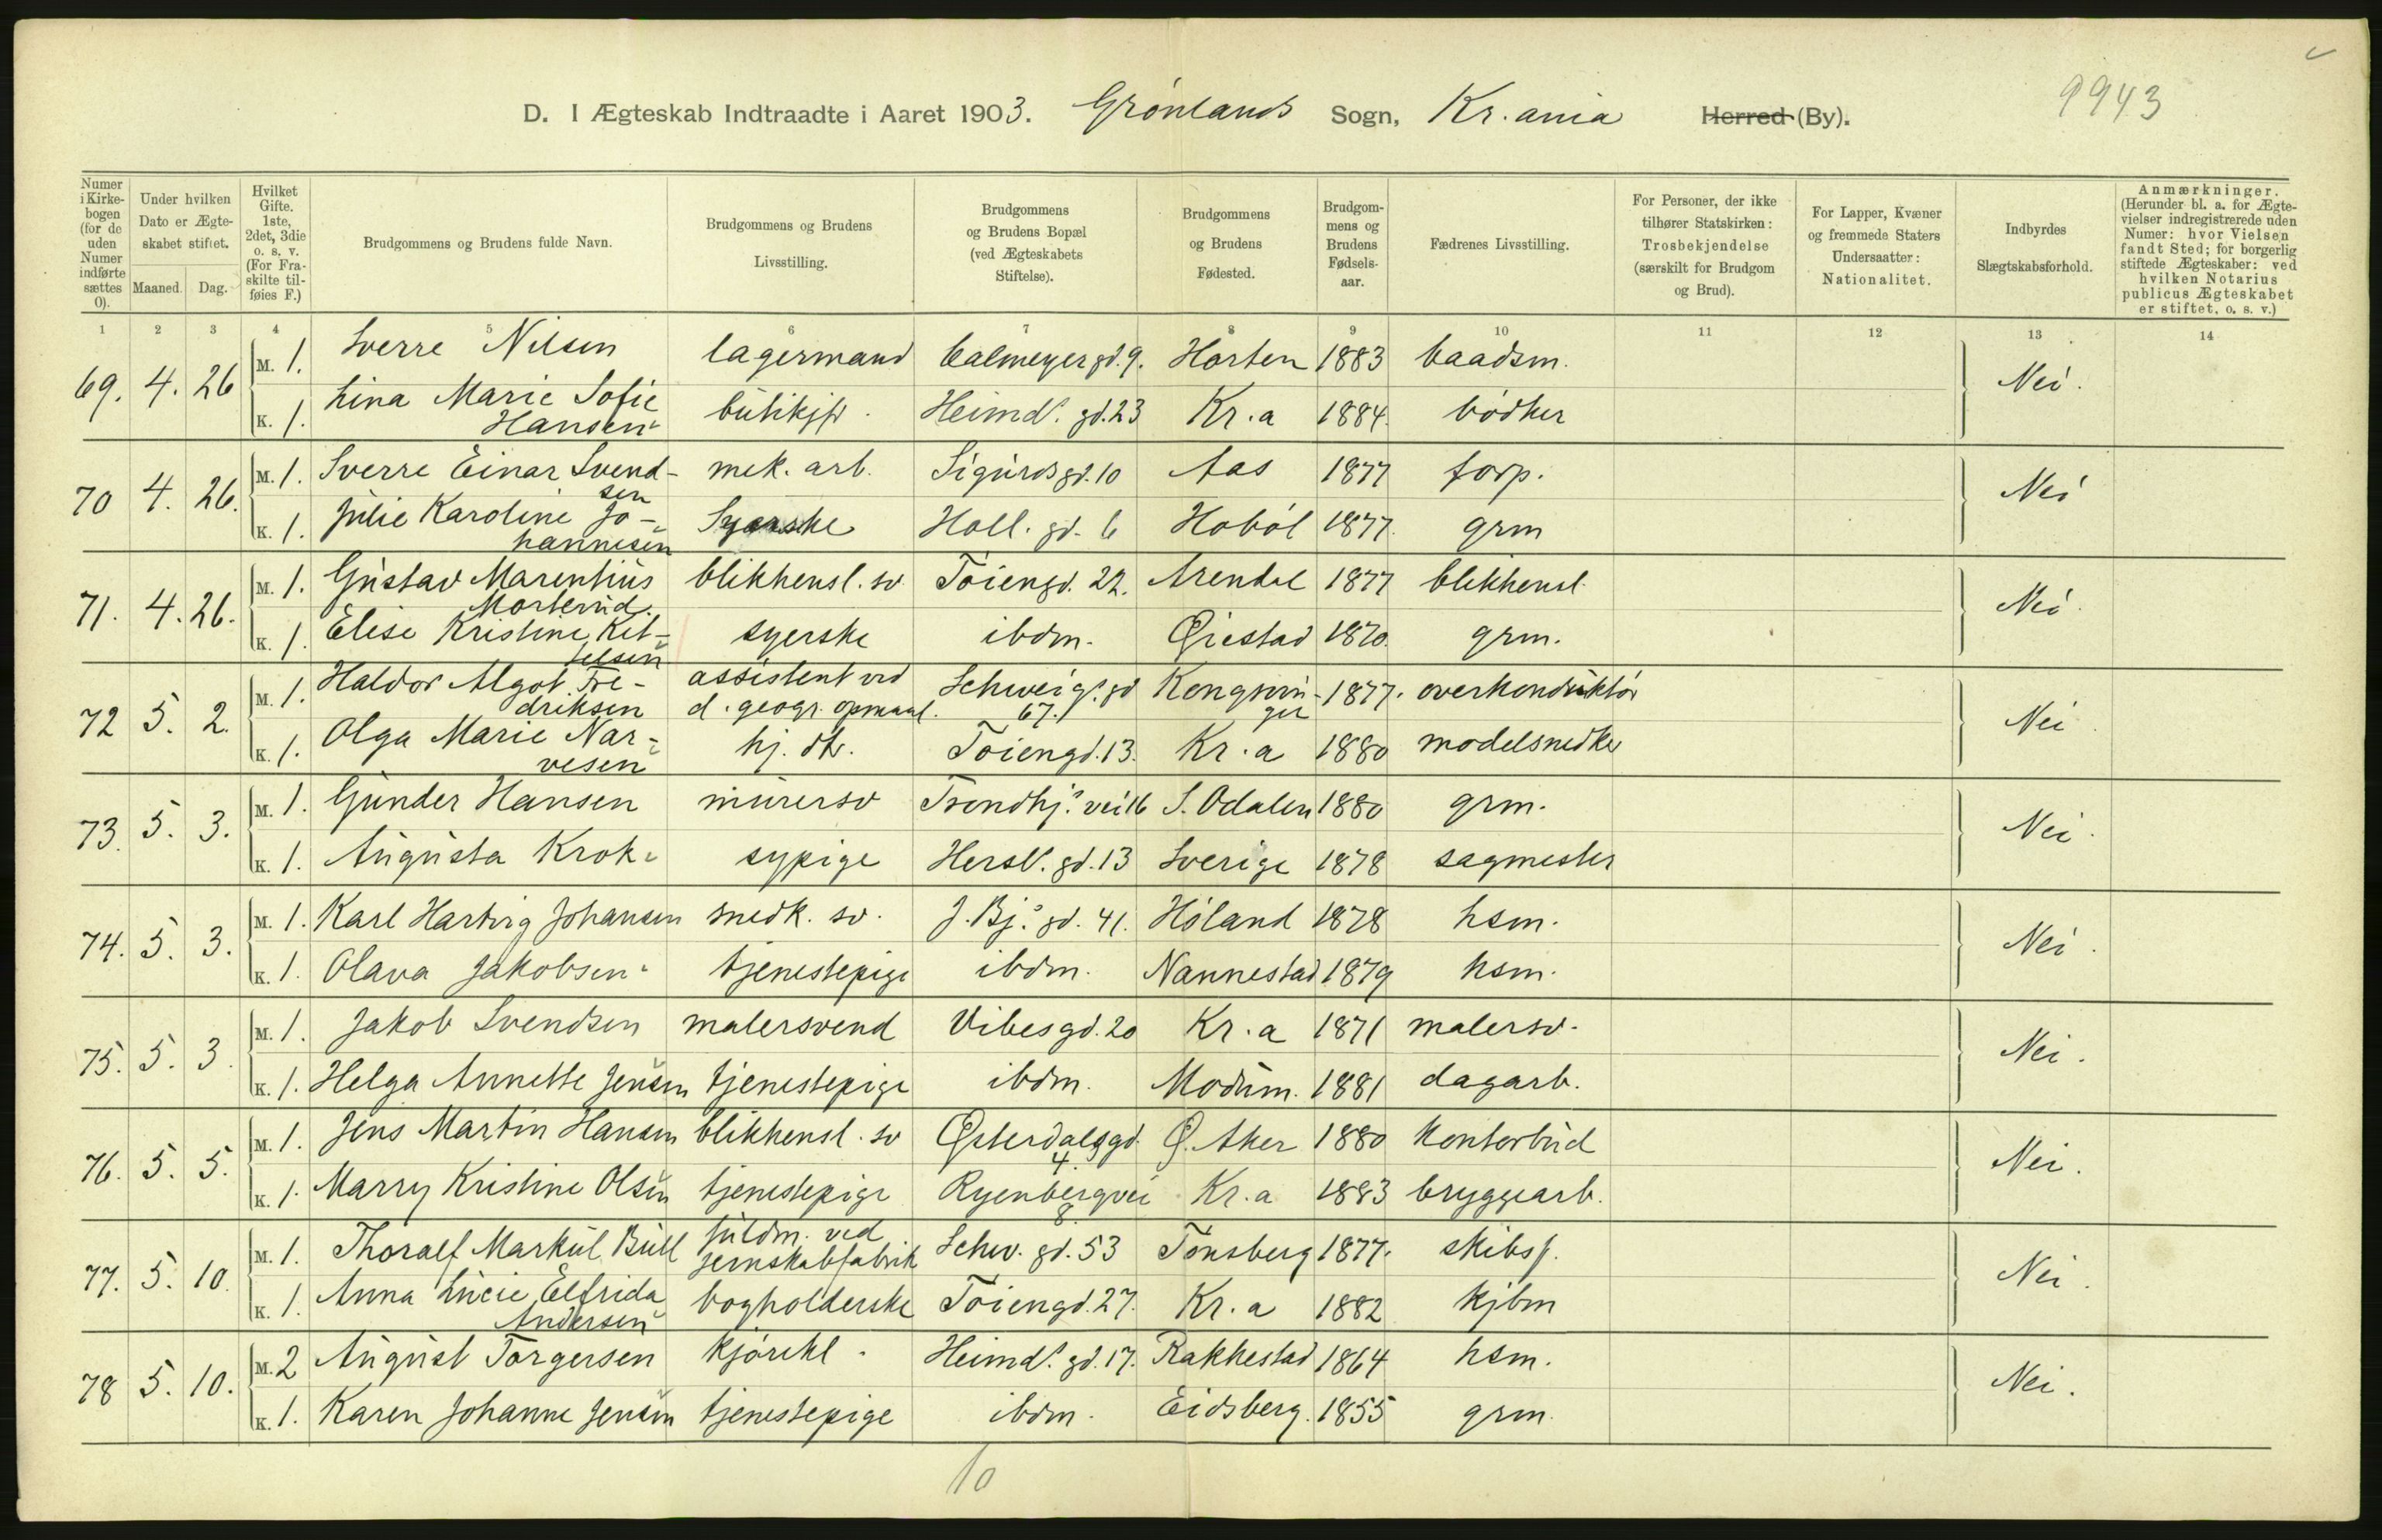 9943
D. I Ægteskab Indtraadte i Aaret 1903. Grönlands Sogn, Kr.ania Herred (By).
Numer i Kirkebogen (for de uden Numer indførte sættes 0).
Under hvilken Dato er Ægteskabet stiftet.
Maaned. Dag.
Hvilket Gifte. 1ste, 2det, 3die o. s. v. (For Fraskilte tilføies F.)
Brudgommens og Brudens fulde Navn.
Brudgommens og Brudens Livsstilling.
Brudgommens og Brudens Bopæl (ved Ægteskabets Stiftelse).
Brudgommens og Brudens Fødested.
Brudgommens og Brudens Fødselsaar.
Fædrenes Livsstilling.
For Personer, der ikke tilhører Statskirken: Trosbekjendelse (særskilt for Brudgom og Brud).
For Lapper, Kvæner og fremmede Staters Undersaatter: Nationalitet.
Indbyrdes Slægtskabsforhold.
Anmærkninger. (Herunder bl. a. for Ægtevielser indregistrerede uden Numer: hvor Vielsen fandt Sted; for borgerlig stiftede Ægteskaber: ved hvilken Notarius publicus Ægteskabet er stiftet, o. s. v.)
1 2 3 4 5 6 7 8 9 10 11 12 13 14
69. 4. 26 M. 1. Sverre Nilsen lagermand Calmeyergd. 9. Horten 1883 baadsm. Nei.
K. 1. Lina Marie Sofie Hansen butikjfr. Heimd.s gd. 23 Kr.a 1884. bödker
70 4. 26. M. 1. Sverre Einar Svendsen mek. arb. Sigurdsgd. 10 Aas 1877 forp. Nei
K. 1. Julie Karoline Johannesen Syerske Holl. gd. 6 Hoböl 1877. grm
71. 4. 26. M. 1. Gustav Marentius Morterud. blikkensl. sv Töiengd. 22. Arendal 1877 blikkensl. Nei.
K. 1. Elise Kristine Ketjelsen syerske ibdm. Øiestad 1870. grm.
72 5. 2. M. 1. Haldor Algot Fredriksen assistent ved d. geogr. opmaal. Schweig.s gd 67. Kongsvinger 1877. overkonduktör Nei.
K. 1. Olga Marie Narvesen hj. dtr. Töiengd. 13. Kr.a 1880 modelsnedker
73. 5. 3. M. 1. Gunder Hansen murersv Trondhj.s vei 16 S. Odalen 1880 grm. Nei.
K. 1. Augusta Krok sypige Hersl. gd. 13 Sverige 1878 sagmester
74. 5. 3. M. 1. Karl Hartvig Johansen snedk. sv. J. Bj.s gd. 41. Höland 1878 hsm. Nei.
K. 1. Olava Jakobsen tjenestepige ibdm. Nannestad 1879 hsm.
75. 5. 3. M. 1. Jakob Svendsen malersvend Vibesgd. 20 Kr.a 1871 malersv. Nei.
K. 1. Helga Annette Jensen tjenestepige ibdm. Modum. 1881 dagarb.
76. 5. 5. M. 1. Jens Martin Hansen blikkensl. sv Østerdalsgd. 4. Ø. Aker 1880 kontorbud Nei.
K. 1. Marry Kristine Olsen tjenestepige Ryenbergvei 8 Kr.a 1883 bryggearb.
77. 5. 10. M. 1. Thoralf Markul Bull fuldm. ved jernskabfabrik Schw. gd. 53 Tönsberg 1877. skibsf. Nei.
K. 1. Anna Lucie Elfrida Andersen bogholderske Töiengd. 27. Kr.a 1882 kjbm
78 5. 10. M. 2 August Torgersen kjörekl. Heimd.s gd. 17. Rakkestad 1864 hsm. Nei.
K. 1. Karen Johanne Jensen tjenestepige ibdm. Eidsberg. 1855 grm.
10